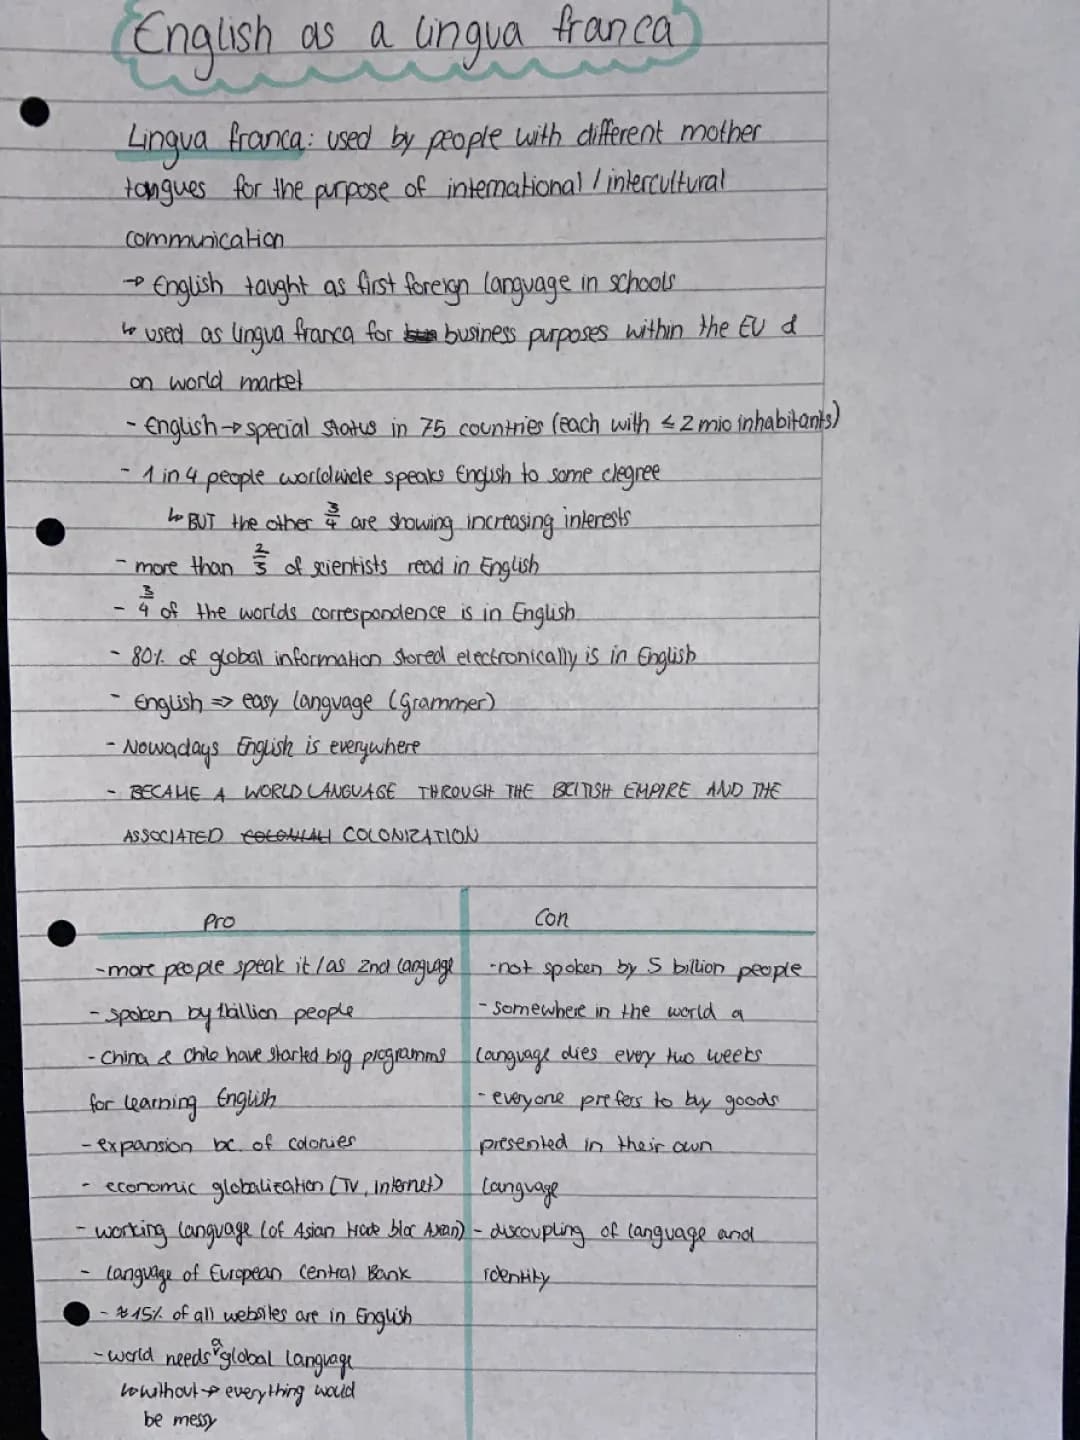 English as a lingua franca
Lingua franca: used by people with different mother
tongues for the purpose of international / intercultural
communication
→ English taught as first foreign language in schools
↳ used as lingua franca for business purposes within the EU &
on world market
- English → special status in 75 countries (each with ≤ 2 mio inhabitants)
- 1 in 4 people worldwide speaks English to some degree
↳ BUT the other 3/4 are showing increasing interests
- more than 2/3 of scientists read in English
- 3/4 of the worlds correspondence is in English
- 80% of global information stored electronically is in English
- English => easy language (Grammer)
- Nowadays English is everywhere
- BECAME A WORLD LANGUAGE THROUGH THE BRITISH EMPIRE AND THE
ASSOCIATED COLONIZATION
Pro
- more people speak it / as 2nd language
- spoken by 1billion people
- China & Chile have started big programms
for learning English
- expansion bc. of colonies
- economic globalization (TV, internet)
- working language (of Asian trade bloc Asean)
- language of European Central Bank
- 15% of all websites are in English
- world needs a global language
↳ without → everything would
be messy
Con
- not spoken by 5 billion people
- somewhere in the world a
language dies every two weeks
- everyone prefers to by goods
presented in their own
language
- discoupling of language and
identity